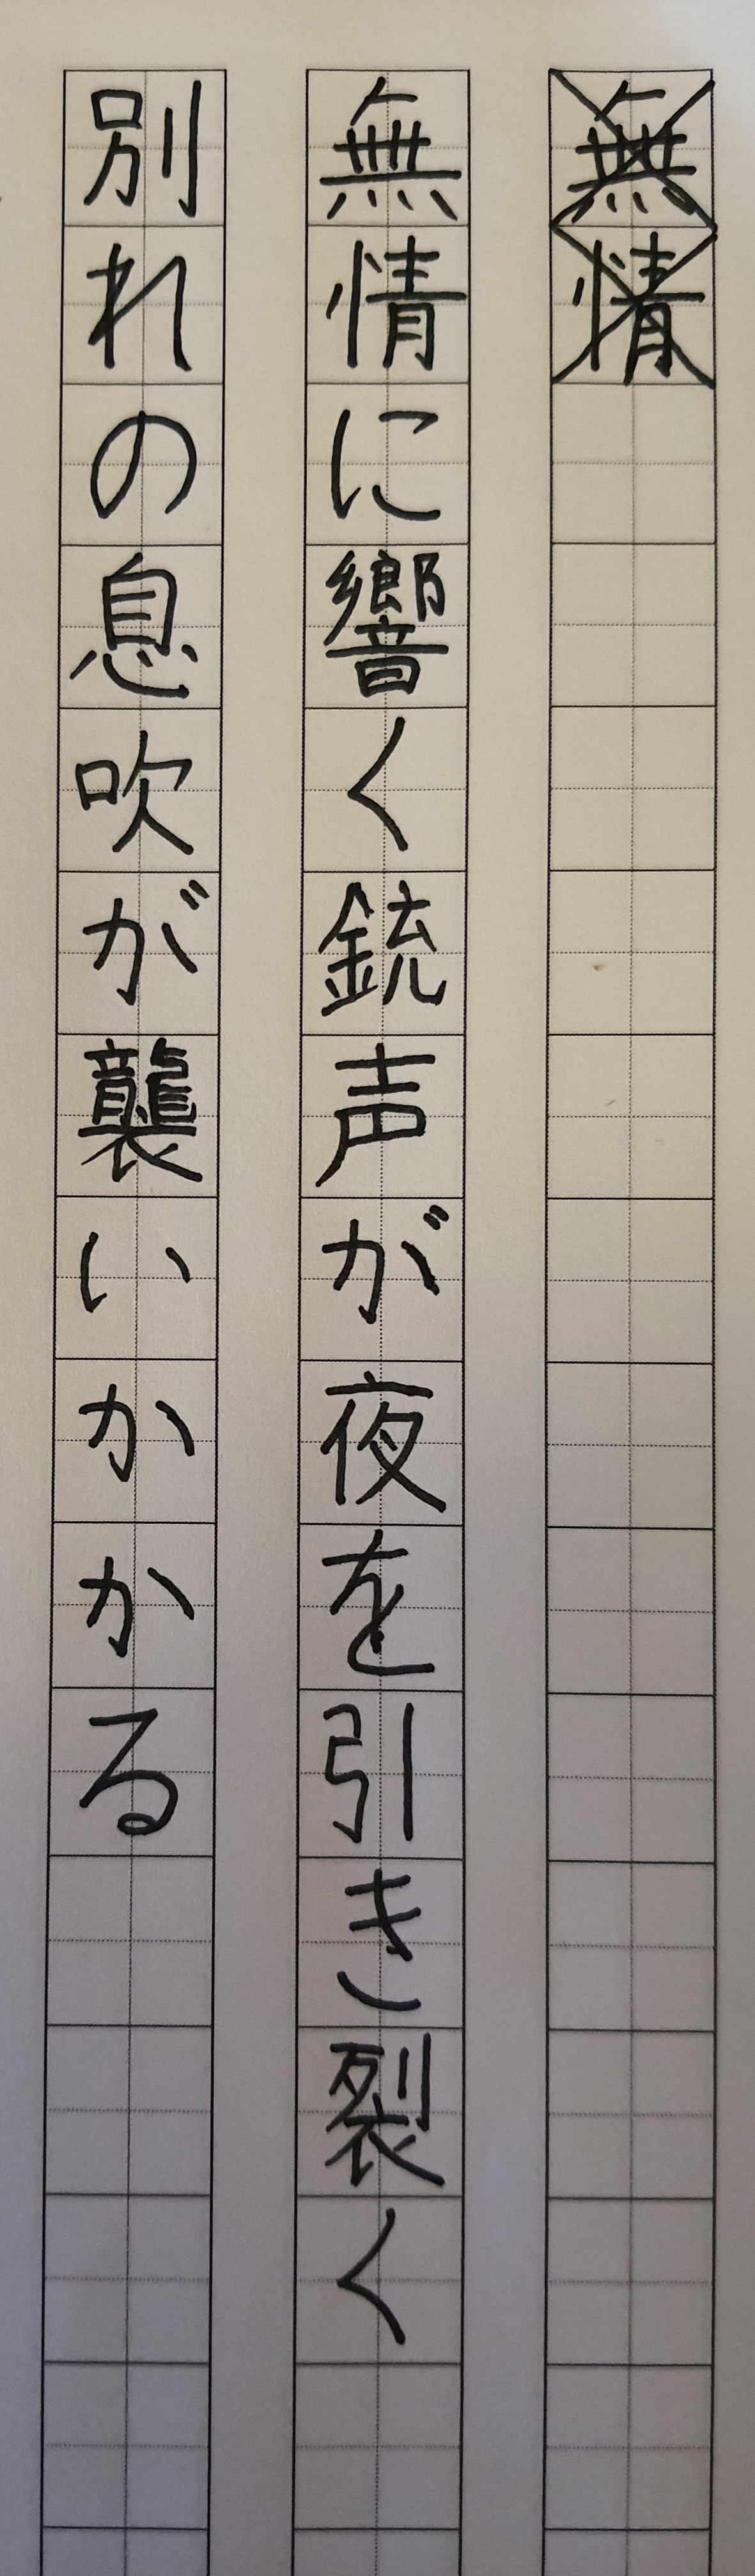 無情
無情に響く銃声が夜を引き裂く
別れの息吹が襲いかかる